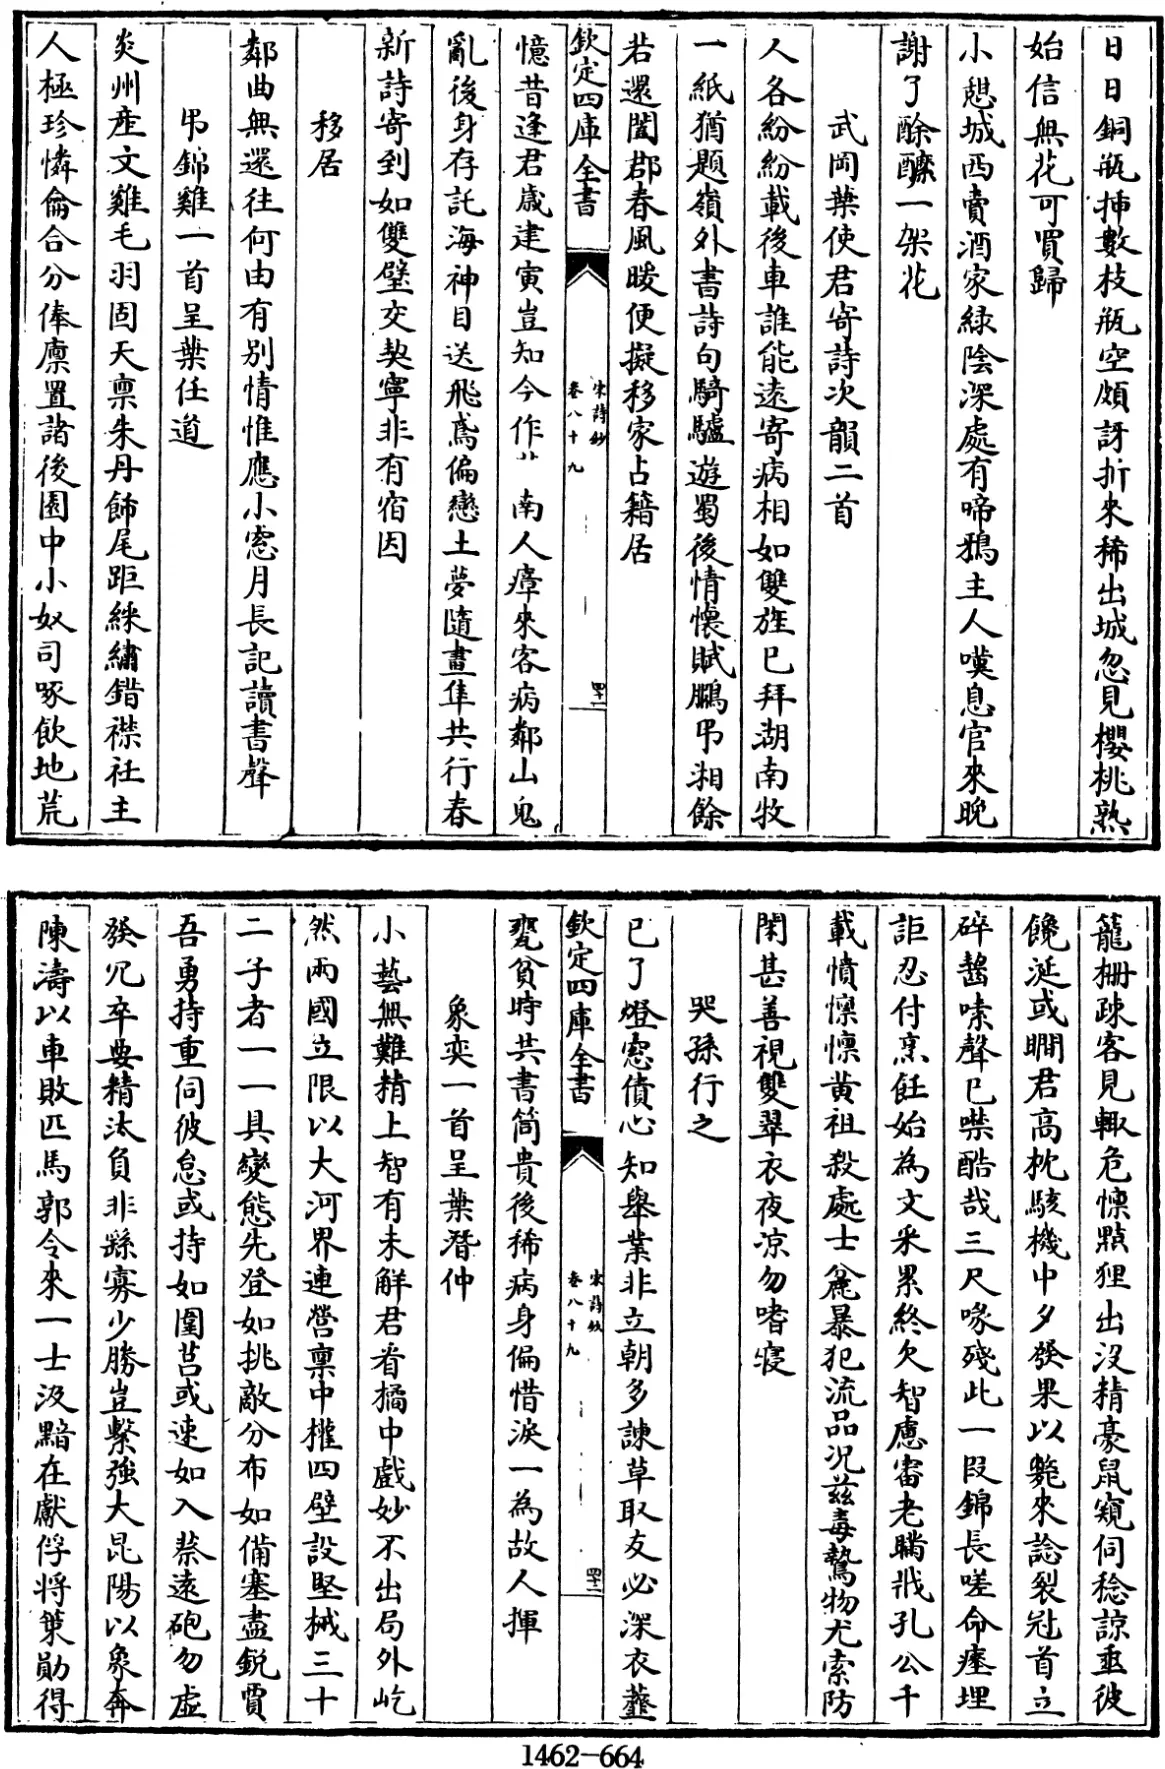 日日銅瓶挿數枝瓶空頗訝折來稀出城忽見櫻桃熟
始信無花可買歸
小憇城西賣酒家緑陰深處有啼鴉主人嘆息官來晚
謝了酴醿一架花
武岡葉使君寄詩次韻二首
人各紛紛載後車誰能逺寄病相如雙旌已拜湖南牧
一紙猶題嶺外書詩句騎驢遊蜀後情懷賦鵩弔湘餘
若還閣郡春風暖便擬移家占籍居
欽定四庫全書
宋詩鈔
卷八十九
四十一
憶昔逢君嵗建寅豈知今作 南人瘴來客病鄰山鬼
亂後身存託海神目送飛鳶偏戀土夢隨畫隼共行春
新詩寄到如雙璧交契寧非有宿因
移居
鄰曲無還往何由有别情惟應小窓月長記讀書聲
弔錦雞一首呈葉任道
炎州産文雞毛羽固天禀朱丹飾尾距綵繡錯襟衽主
人極珍憐龠合分俸廪置諸後園中小奴司啄飲地荒
籠柵疎客見輙危懍黠狸出没精豪鼠窺伺稔諒垂彼
饞涎或瞯君高枕駭機中夕發果以斃來諗裂冠首立
碎齧嗉聲已噤酷哉三尺喙殘此一段錦長嗟命瘞埋
詎忍付烹飪始為文采累終欠智慮審老瞞戕孔公千
載憤懍懍黄祖殺處士麄暴犯流品况兹毒鷙物尤索防
閑甚善視雙翠衣夜凉勿嗜寝
哭孫行之
已了燈窓債心知舉業非立朝多諫草取友必深衣虀
欽定四庫全書
宋詩鈔
卷八十九
四十二
甕貧時共書筒貴後稀病身偏惜淚一為故人揮
象奕一首呈葉潛仲
小藝無難精上智有未解君看橘中戲妙不出局外屹
然兩國立限以大河界連營禀中權四壁設堅械三十
二子者一一具變態先登如挑敵分布如備塞盡鋭賈
吾勇持重伺彼怠或持如圍莒或速如入蔡逺砲勿虛
發冗卒要精汰負非繇寡少勝豈繫強大昆陽以象奔
陳濤以車敗匹馬郭令來一士汲黯在獻俘將策勛得
1462-664